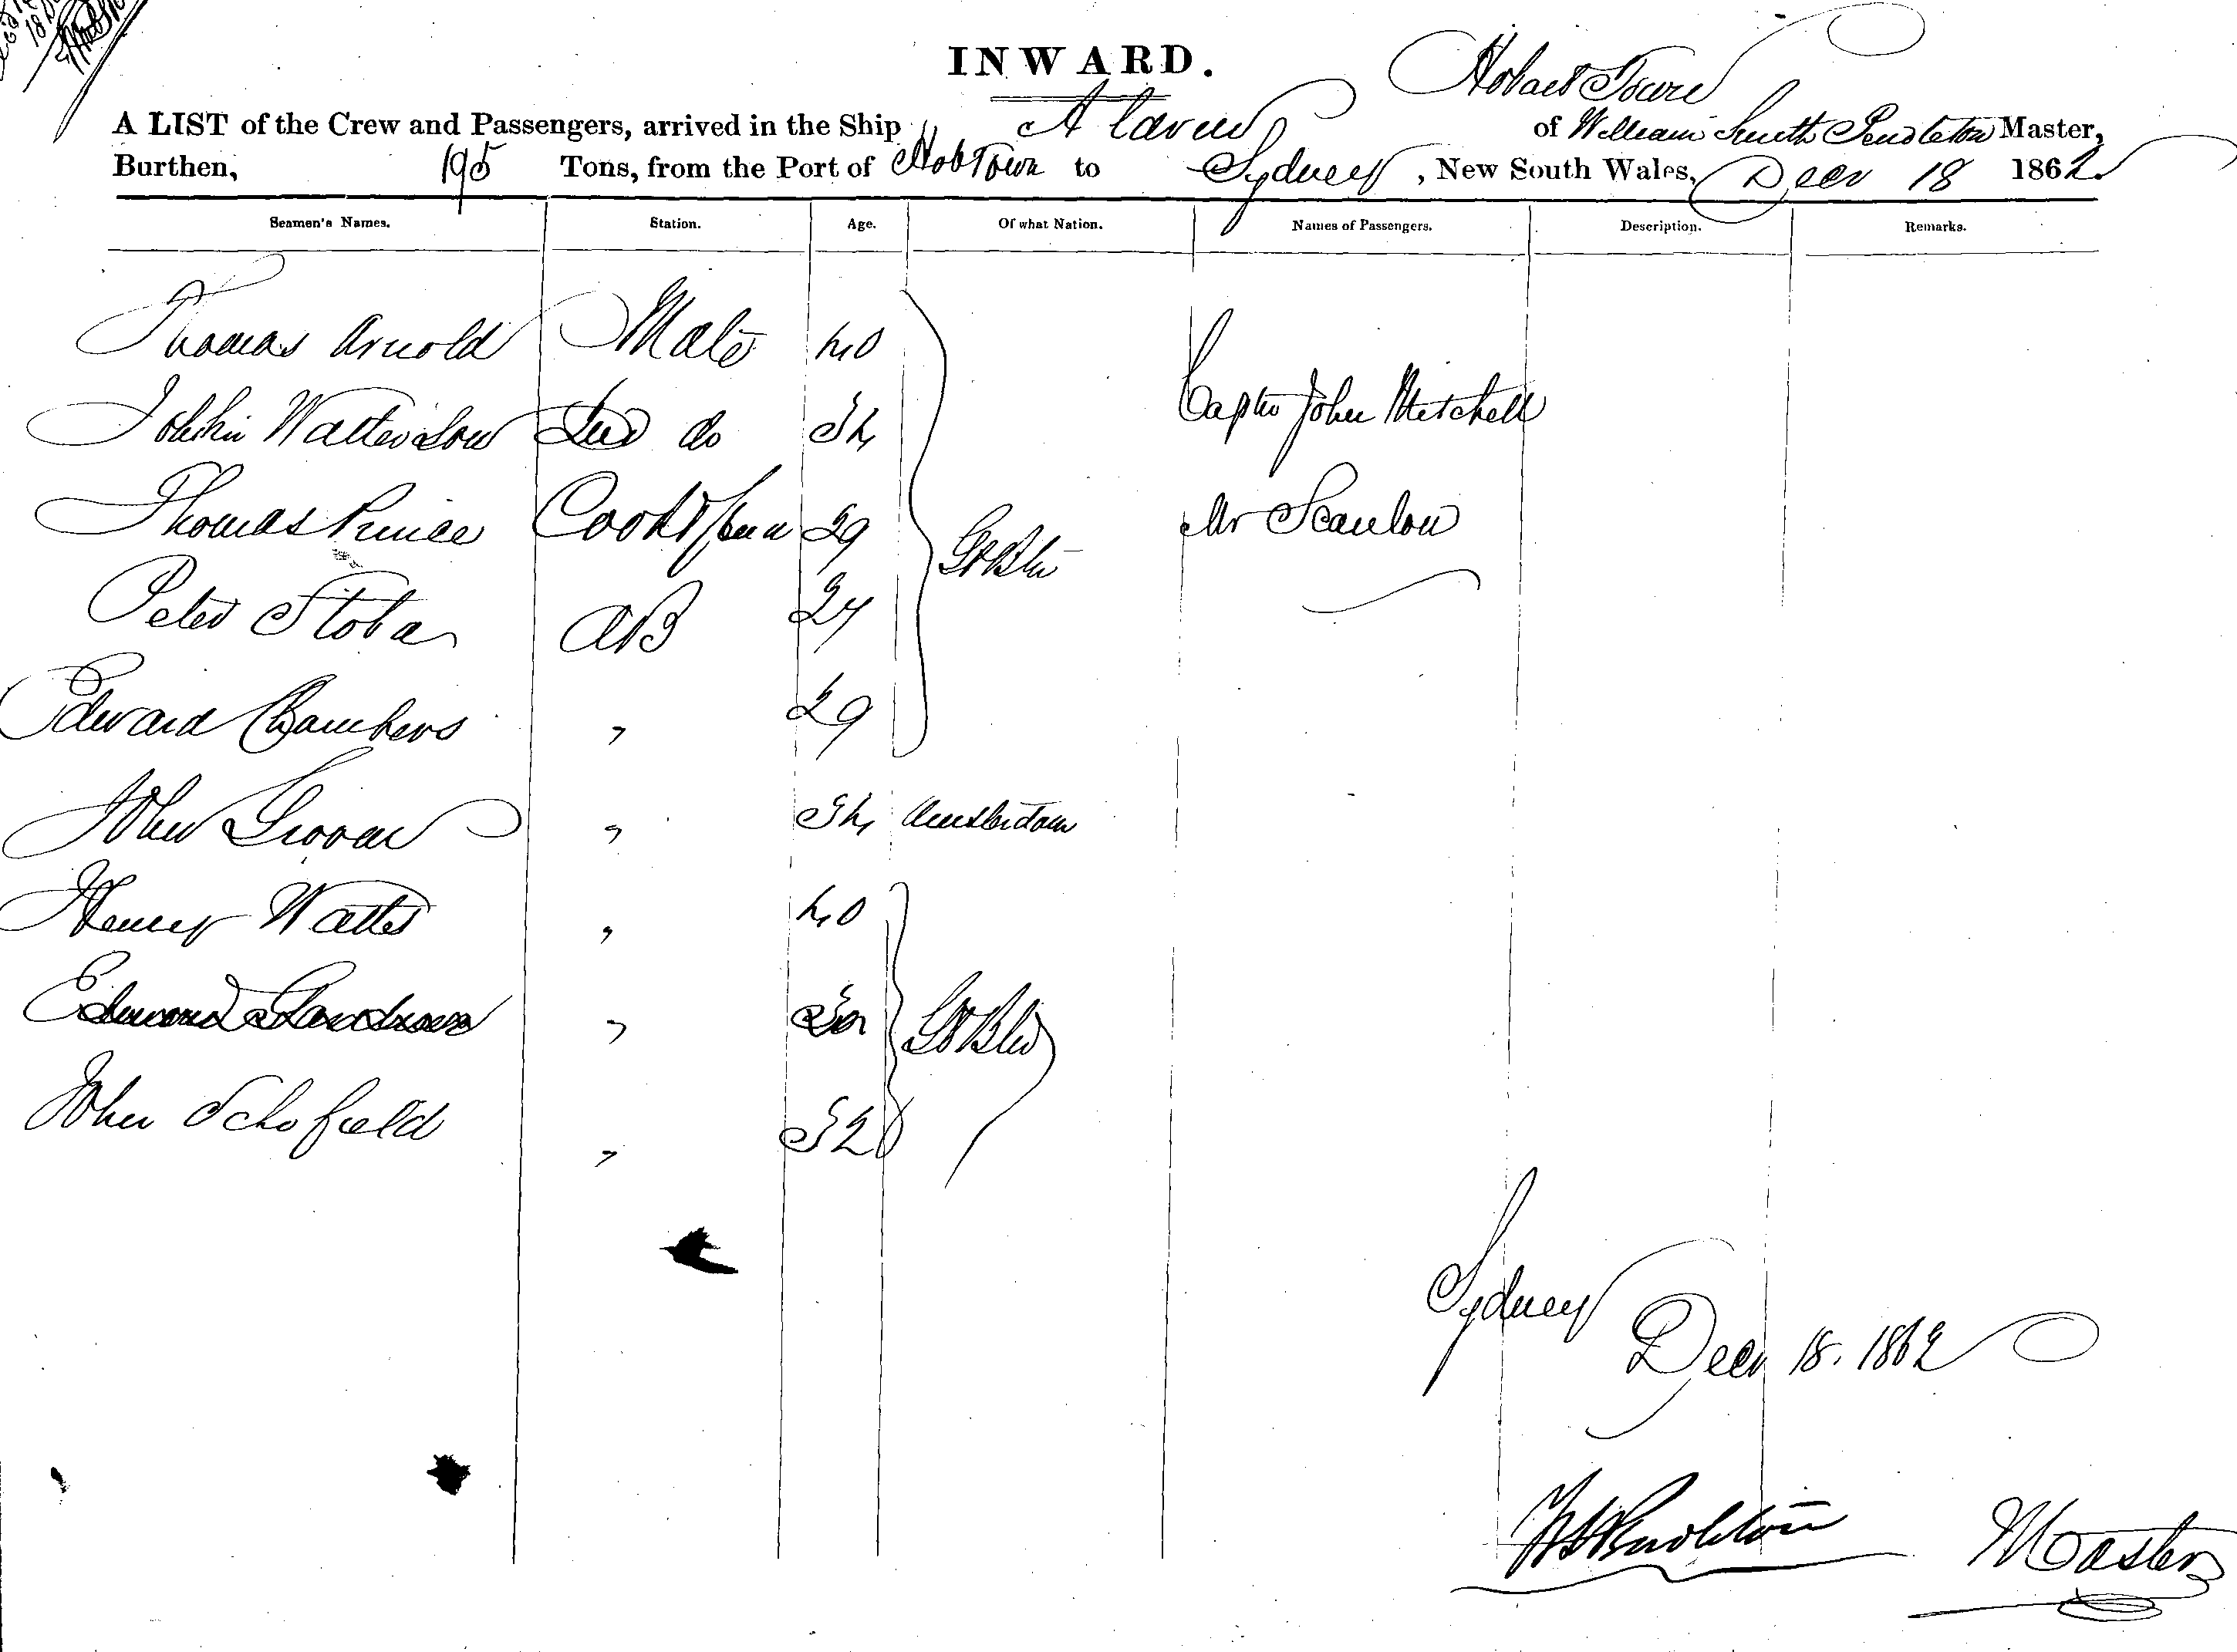 INWARD.
Hobart Town
A LIST of the Crew and Passengers, arrived in the Ship of William Smith Pendleton Master,
Burthen, 195 Tons, from the Port of HobTown to Sydney, New South Wales, Decr 18 1862
Seamen's Names. Station. Age. Of what Nation. Names of Passengers. Description. Remarks.
Thomas Arnold Mate 40
Capt John Mitchell
do 34
Thomas Prince Cook 29 Mr Scanlon
Gt Btn
Peter AB 24
Edward Chambers " 29
John " 34 Amsterdam
Henry Watts " 40
Edward "
Gt Btn
John Schofield " 32
Sydney
Decr 18. 1862
WS Pendleton Master